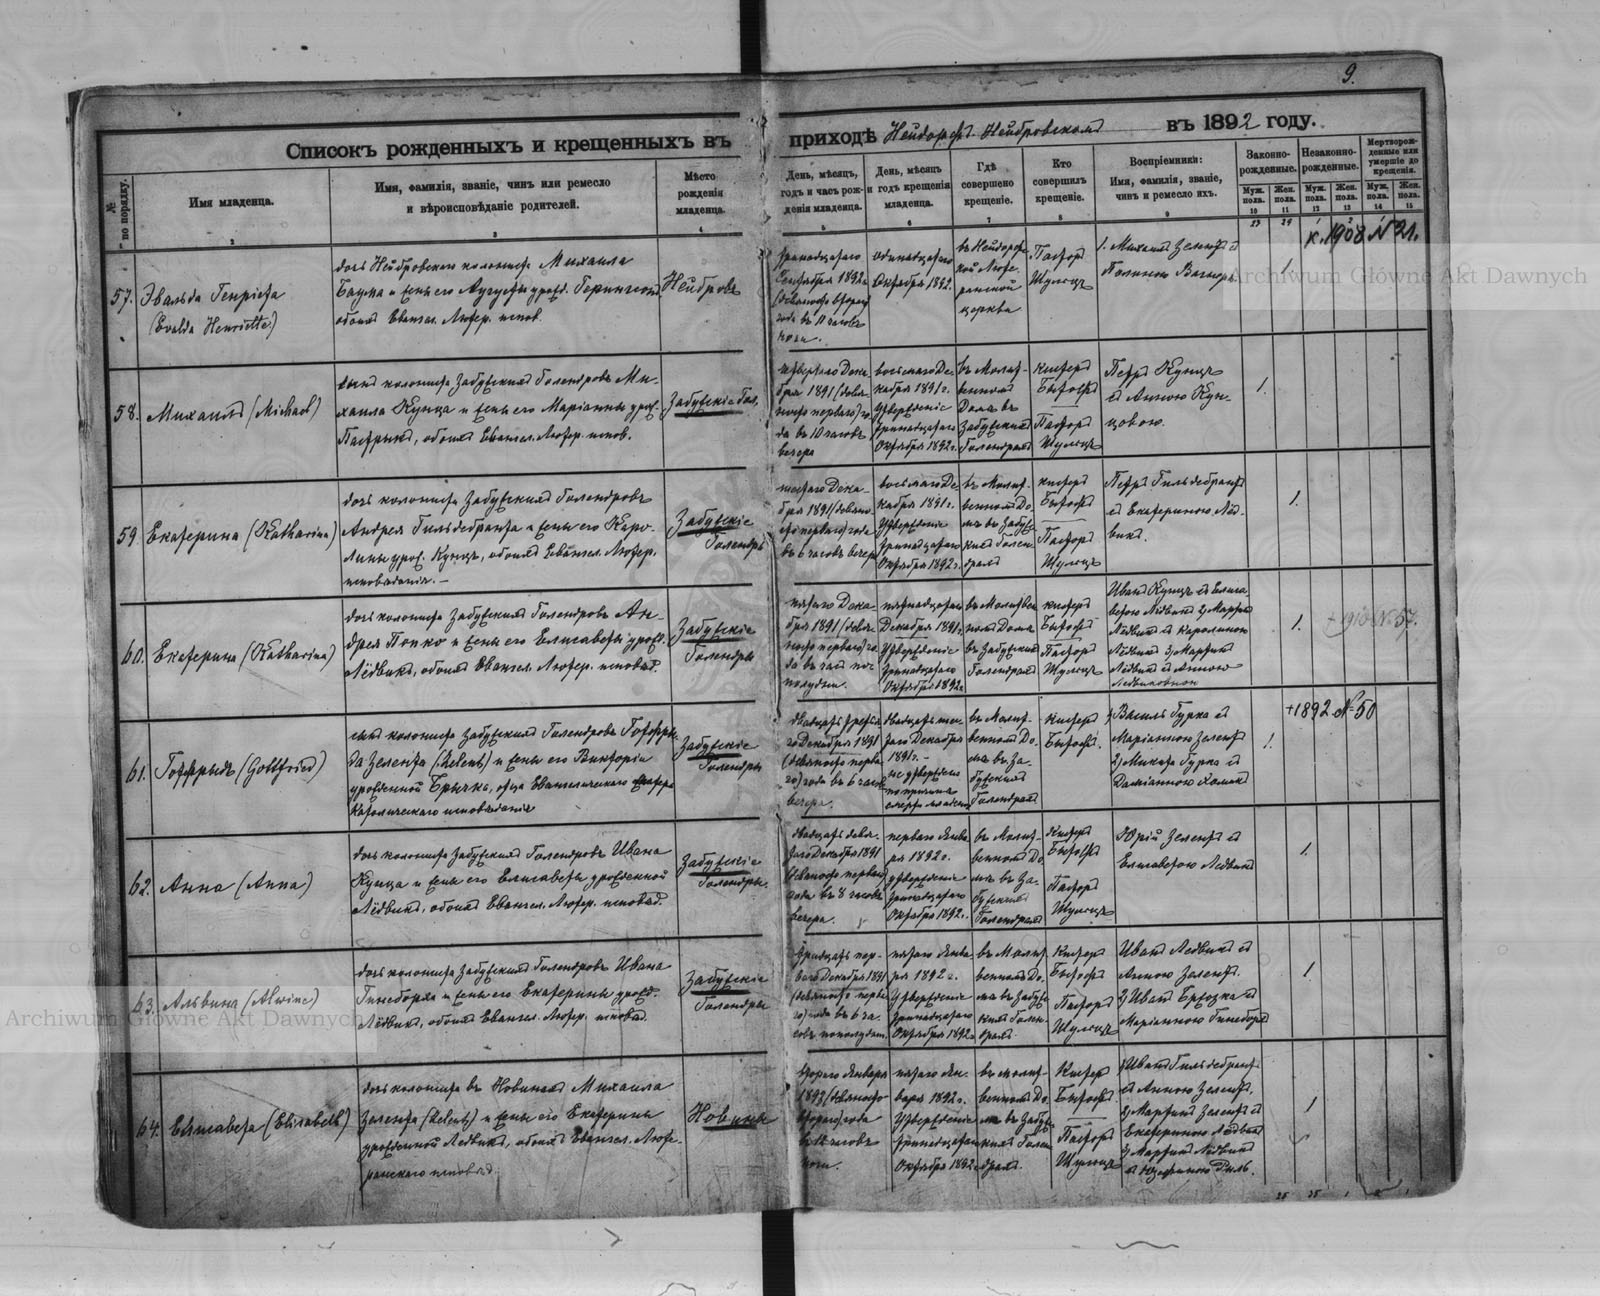 9.
Списокъ рожденныхъ и крещенныхъ въ приходѣ Нейдорфъ-Нейбровскомъ въ 1892 году.
№ по порядку.
Имя младенца.
Имя, фамилія, званіе, чинъ или ремесло
и вѣроисповѣданіе родителей.
Мѣсто
рожденія
младенца.
День, мѣсяцъ,
годъ и часъ рож-
денія младенца.
День, мѣсяцъ
и годъ крещенія
младенца.
Гдѣ
совершено
крещеніе.
Кто
совершилъ
крещеніе.
Воспріемники:
Имя, фамилія, званіе,
чинъ и ремесло ихъ.
Законно-
рожденные.
Незаконно-
рожденные.
Мертворож-
денные или
умершіе до
крещенія.
Муж. пола.
Жен. пола.
Муж. пола.
Жен. пола.
Муж. пола.
Жен. пола.
2 3 4 5 6 7 8 9 10 11 12 13 14 15
23 24
57. Эвальда Генріета
(Evalda Henriette)
дочь Нейбровскаго колониста Михаила
Баума и жены его Августы урожд.
обоихъ Евангел. Лютер. испов.
Нейбровъ
Сентября 1892 г.
(девяносто второго)
года въ 11 часовъ
ночи.
одинадцатаго
Октября 1892.
въ Нейдорфс-
кой Люте-
ранской
церкви
Пасторъ
Шульцъ
1. Михаилъ Зелентъ и
Полиною Вагнеръ.
1.
к. 1908 № 21.
58. Михаилъ (Michael)
сынъ колониста Забужскихъ Голендровъ Ми-
хаила Кунца и жены его Маріанны урож.
Пастрикъ, обоихъ Евангел. Лютер. испов.
Забужскіе Гол.
четвертаго Дека-
бря 1891 (девя-
носто перваго) го-
да въ 10 часовъ
вечера
восьмаго Де-
кабря 1891 г.
Утвержденіе
тринадцатаго
Октября 1892 г.
въ Молит-
венномъ
Домѣ въ
Забужскихъ
Голендрахъ
кистеръ
Бытофтъ
Пасторъ
Шульцъ
Петръ Кунцъ
и Анною Кун-
цовою.
1.
59. Екатерина (Katharina)
дочь колониста Забужскихъ Голендровъ
Андрея Гильдебранта и жены его Каро-
лины урож. Кунцъ, обоихъ Евангел. Лютер.
исповѣданія. —
Забужскіе
Голендры
шестаго Дека-
бря 1891 (девяно-
сто перваго) года
въ 6 часовъ вечера
восьмаго Де-
кабря 1891 г.
Утвержденіе
тринадцатаго
Октября 1892 г.
въ Молит-
венномъ До-
мѣ въ Забуж-
скихъ Голен-
драхъ
кистеръ
Бытофтъ
Пасторъ
Шульцъ
Петръ Гильдебрантъ
и Екатериною Лод-
викъ.
1.
60. Екатерина (Katharina)
дочь колониста Забужскихъ Голендровъ Ан-
дрея Попко и жены его Елисаветы урожд.
Лодвикъ, обоихъ Евангел. Лютер. исповѣд.
Забужскіе
Голендры
пятаго Дека-
бря 1891 (девя-
носто перваго) го-
да въ часъ по-
полудни.
пятнадцатаго
Декабря 1891 г.
Утвержденіе
тринадцатаго
Октября 1892 г.
въ Молитвен-
номъ Домѣ
въ Забужскихъ
Голендрахъ
кистеръ
Бытофтъ
Пасторъ
Шульцъ
Иванъ Кунцъ и Елиса-
ветою Лодвикъ 2) Мартинъ
Лодвикъ и Каролиною
Лодвикъ 3) Мартинъ
Лодвикъ и Анною
1.
№ 57.
61. Готфридъ (Gottfried)
сынъ колониста Забужскихъ Голендровъ Готфри-
да Зелента (Zelent) и жены его Викторіи
урожденной Брычка, отца Евангелическаго
Католическаго исповѣданія
Забужскіе
Голендры
двадцать третья-
го Декабря 1891
(девяносто перва-
го) года въ 6 часовъ
вечера.
двадцать шес-
таго Декабря
1891 г. —
не утверждено
по причинѣ
смерти младенца
въ Молит-
венномъ До-
мѣ въ За-
бужскихъ
Голендрахъ
Кистеръ
Бытофтъ.
1) Василь Гурка и
Маріанною Зелентъ
2) Микита Гурка и
1.
+1892 № 50
62. Анна (Anna)
дочь колониста Забужскихъ Голендровъ Ивана
Кунца и жены его Елисаветы урожденной
Лодвикъ, обоихъ Евангел. Лютер. исповѣд.
Забужскіе
Голендры.
двадцать девя-
таго Декабря 1891
(девяносто перваго)
года въ 8 часовъ
вечера.
перваго Янва-
ря 1892 г.
утвержденіе
тринадцатаго
Октября 1892 г.
въ Молит-
венномъ До-
мѣ въ За-
бужскихъ
Голендрахъ
Кистеръ
Бытофтъ
Пасторъ
Шульцъ
Юрій Зелентъ и
Елисаветою Лодвикъ
1.
63. Альвина (Alwine)
дочь колониста Забужскихъ Голендровъ Ивана
Гинсборга и жены его Екатерины урожд.
Лодвикъ, обоихъ Евангел. Лютер. исповѣд.
Забужскіе
Голендры
тридцать пер-
ваго Декабря 1891
(девяносто перва-
го) года въ 6 ча-
совъ пополудни.
пятаго Янва-
ря 1892 г.
Утвержденіе
тринадцатаго
Октября 1892 г.
въ Молит-
венномъ До-
мѣ въ Забуж-
скихъ Голен-
драхъ.
Кистеръ
Бытофтъ
Пасторъ
Шульцъ
Иванъ Лодвикъ и
Анною Зелентъ.
2) Иванъ Брычка и
Маріанною Гинсборгъ
1.
64. Елисавета (Elisabeth)
дочь колониста въ Новинахъ Михаила
Зелента (Zelent) и жены его Екатерины
урожденной Лодвикъ, обоихъ Евангел. Люте-
ранскаго исповѣд.
Новины
второго Января
1892 (девяносто
второго) года
часовъ
ночи.
пятаго Ян-
варя 1892 г.
Утвержденіе
тринадцатаго
Октября 1892
въ Молит-
венномъ До-
мѣ въ Забуж-
скихъ Голен-
драхъ.
Кистеръ
Бытофтъ
Пасторъ
Шульцъ
1) Иванъ Гильдебрантъ
и Анною Зелентъ.
2) Мартинъ Зелентъ и
Екатериною Лодвикъ
3) Мартинъ Лодвикъ
1
Archiwum Główne Akt Dawnych
Archiwum Główne Akt Dawnych